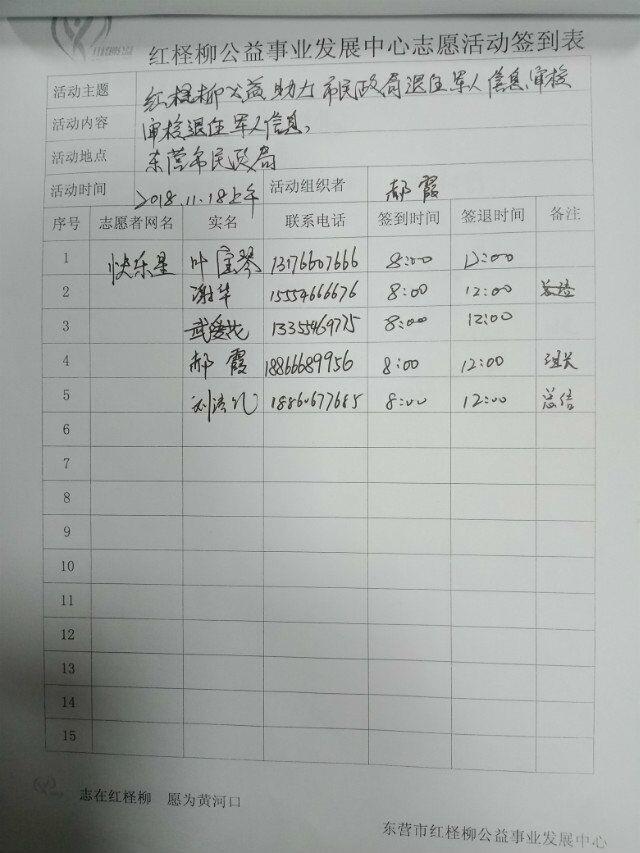 红柽柳公益事业发展中心志愿活动签到表
活动主题 红柽柳公益助力市民政局退伍军人信息审核
活动内容 审核退伍军人信息。
活动地点 东营市民政局
活动时间 2018.11.18上午 活动组织者 郝霞
序号 志愿者网名 实名 联系电话 签到时间 签退时间 备注
1 快乐星 叶宝琴 13176607666 8:00 12:00
2 谢华 15554666676 8:00 12:00
3 13355469775 8:00 12:00
4 郝霞 18866689956 8:00 12:00 组长
5 18860677685 8:00 12:00 总结
6
7
8
9
10
11
12
13
14
15
志在红柽柳 愿为黄河口
东营市红柽柳公益事业发展中心